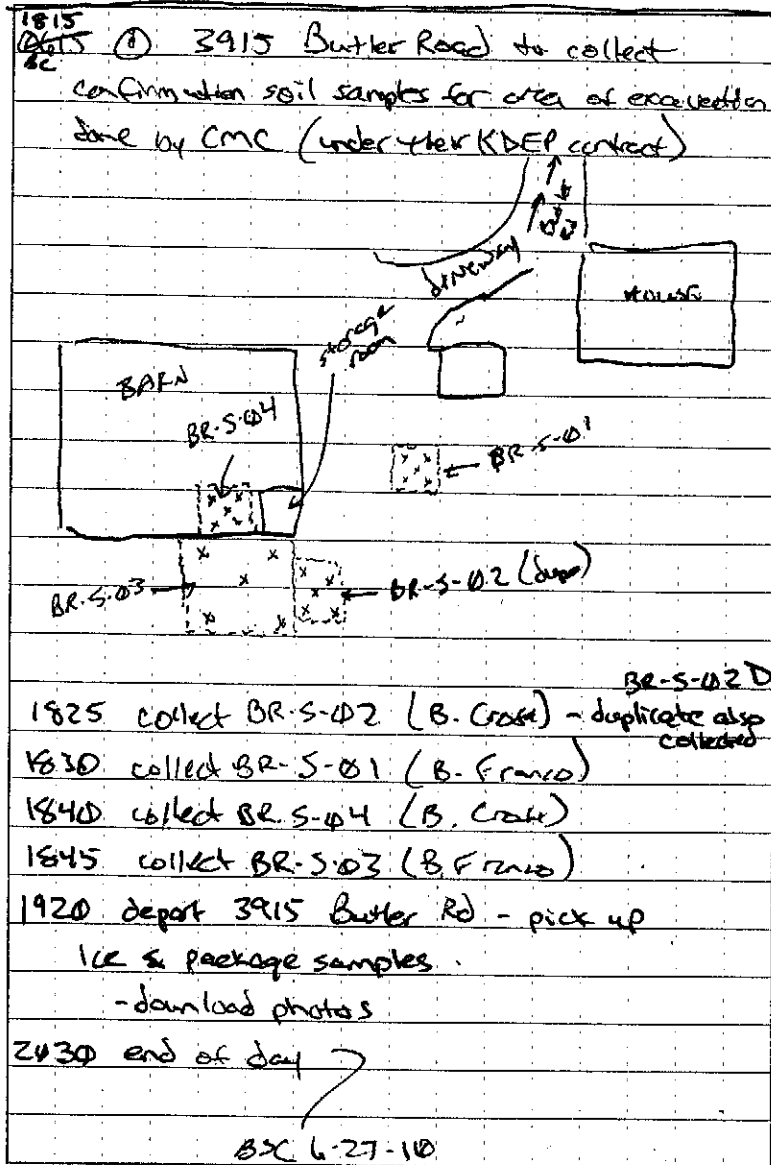 1815
BC @ 3915 Butler Road to collect
confirmation soil samples for area of excavation
done by CMC (under their KDEP contract)
driveway
HOUSE
storage room
BARN
BR-S-04
BR-S-01
BR-S-03
BR-S-02 (dup)
BR-S-02D
1825 collect BR-S-02 (B. Croft) - duplicate also
collected
1830 collect BR-S-01 (B. Franco)
1840 collect BR-S-04 (B. Croft)
1845 collect BR-S-03 (B. Franco)
1920 depart 3915 Butler Rd - pick up
ice & package samples.
- download photos
2030 end of day
BSC 6-27-10